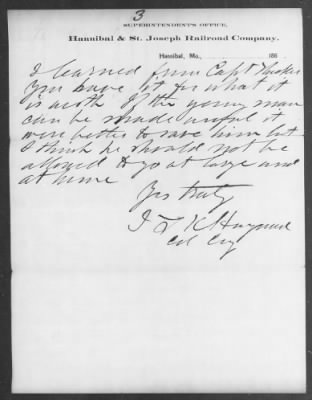 3
SUPERINTENDENT'S OFFICE,
Hannibal & St. Joseph Railroad Company.
Hannibal, Mo., 186
I learned from Capt
You have it for what it
is worth If the young man
can be made useful it
were better to save him but
I think he should not be
allowed to go at large and
at home
Yrs truly
J T K Hayward
Col